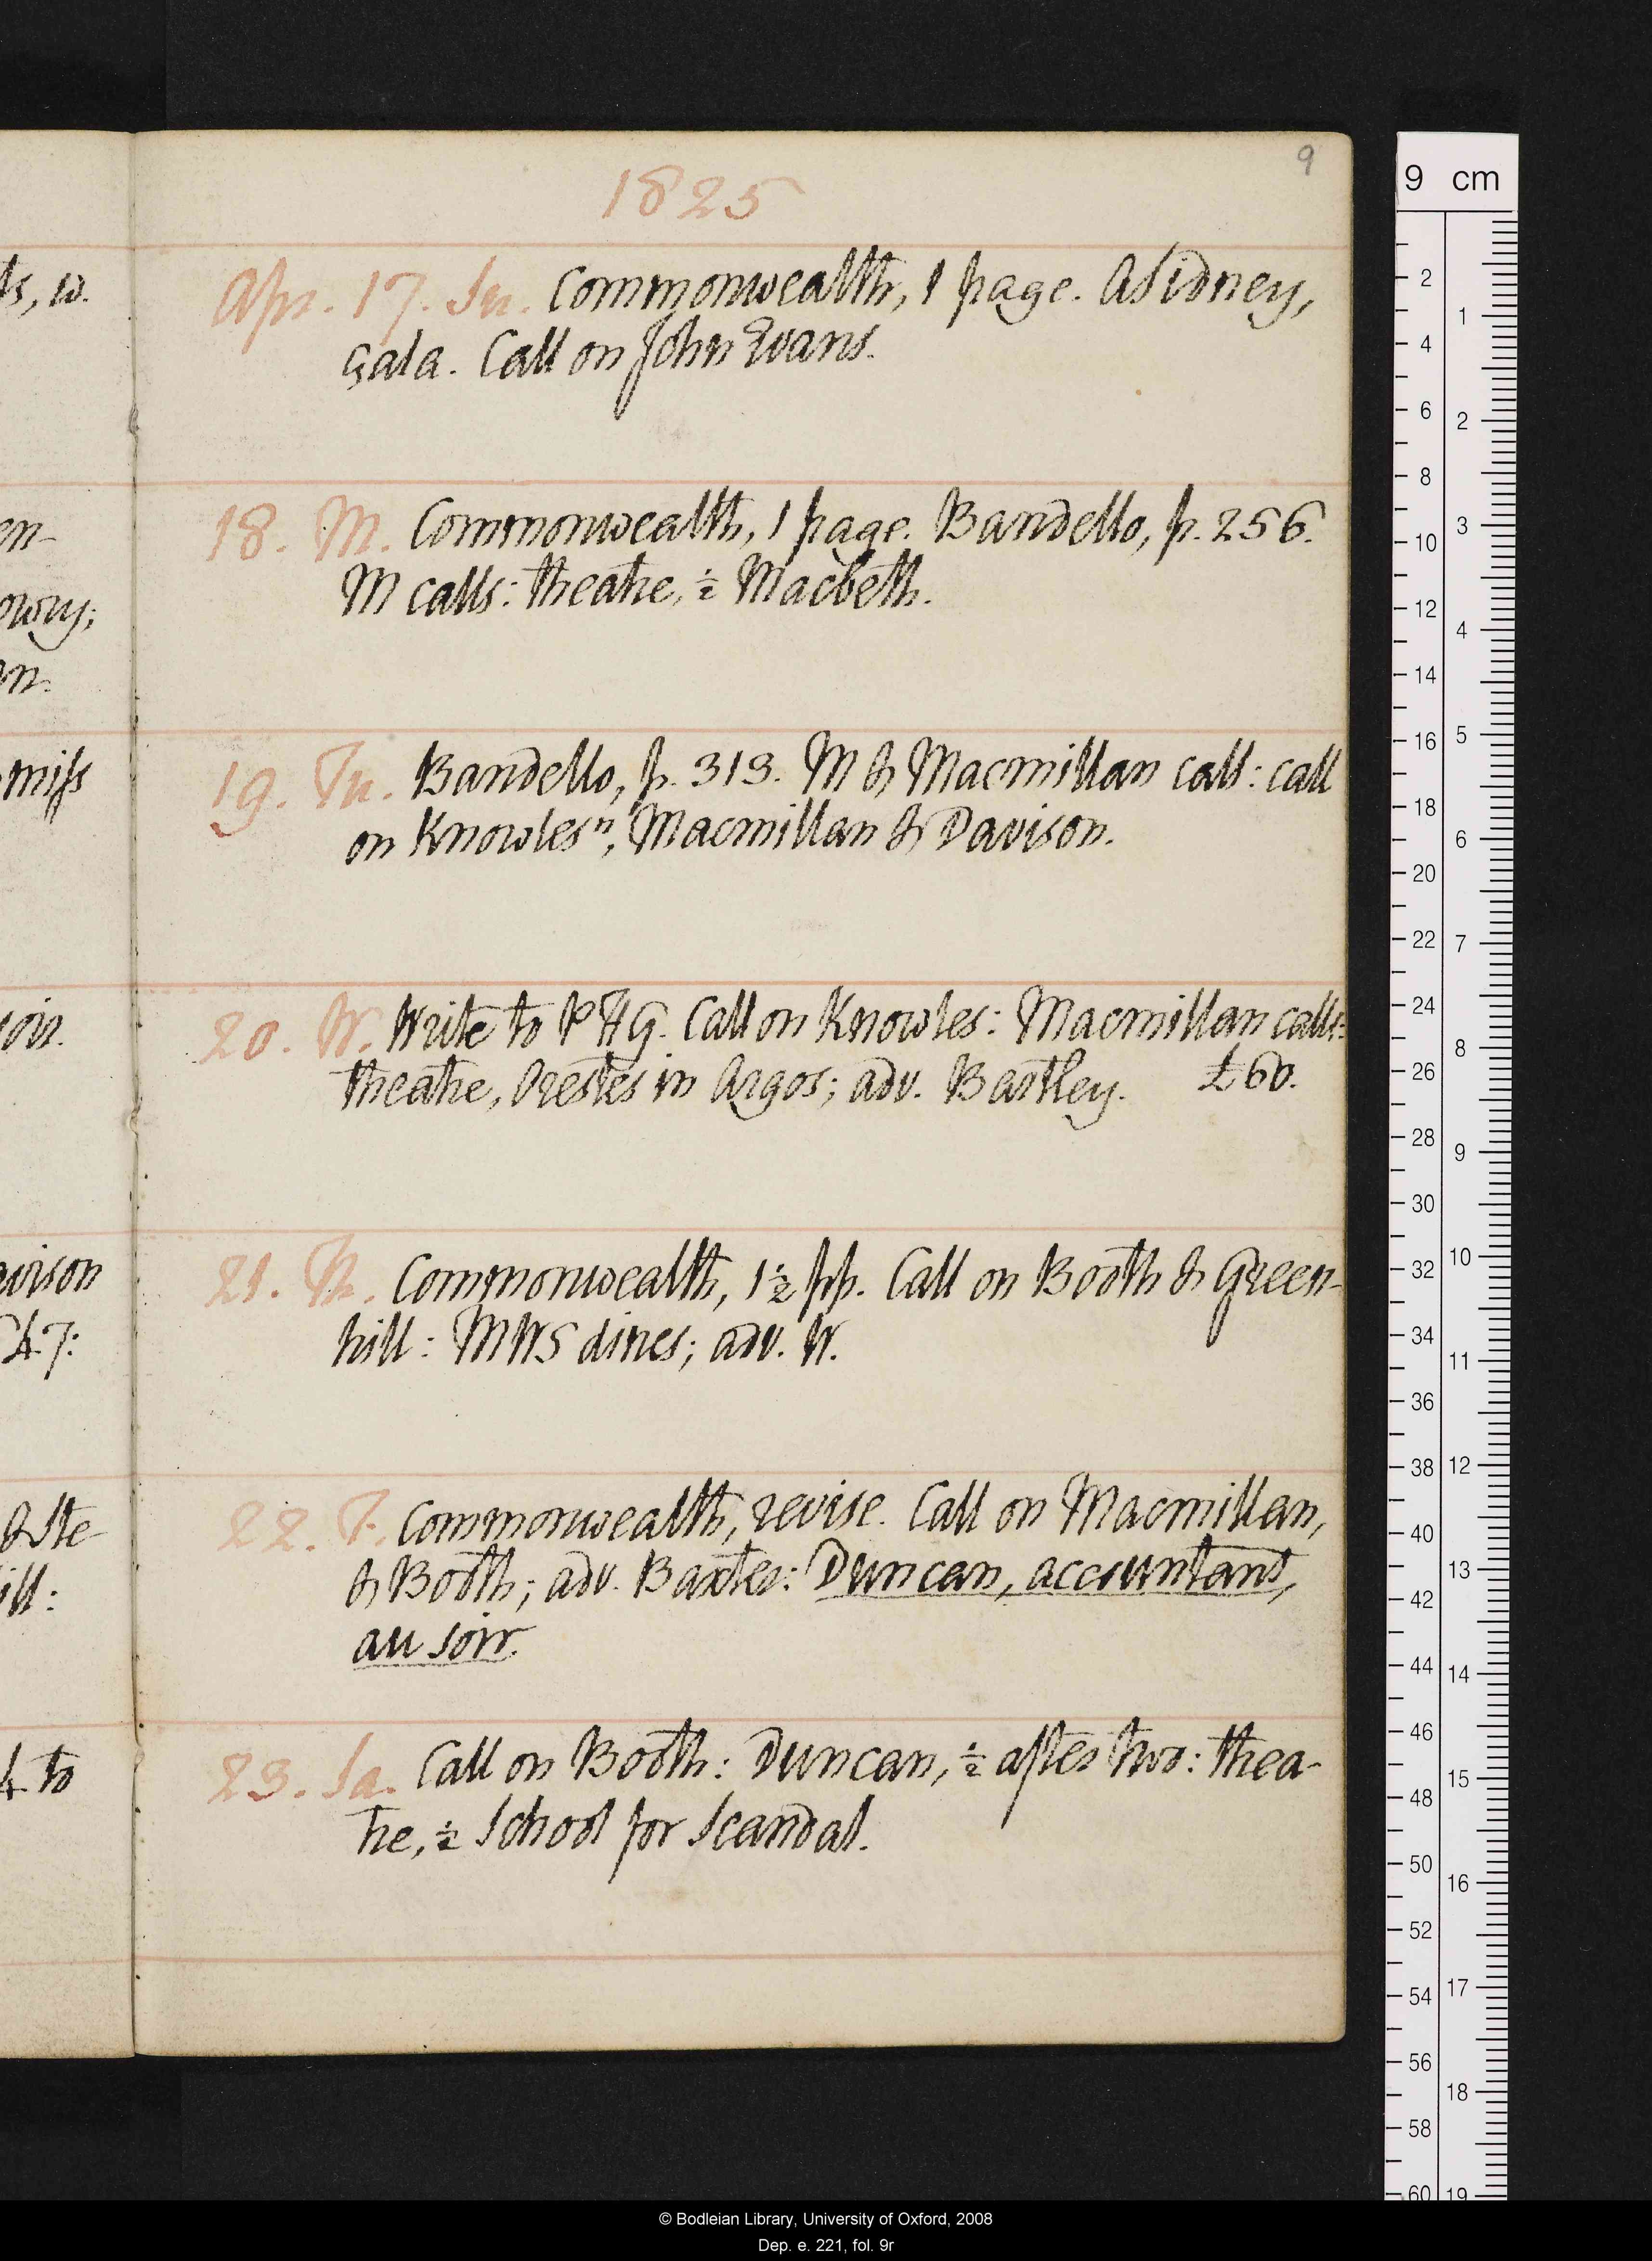 9
1825
ts, w.
Apr. 17. Su. Commonwealth, 1 page. A Sidney,
çala. Call on John Evans.
en-
18. M. Commonwealth, 1 page. Bandello, p. 256.
owry;
M calls: theatre, ½ Macbeth.
on.
miss
19. Tu. Bandello, p. 313. M & Macmillan call: call
on Knowles n, Macmillan & Davison.
20. W. Write to P H G. Call on Knowles: Macmillan calls:
theatre, Orestes in Argos; adv. Bartley. £60.
avison
21. Th. Commonwealth, 1½ pp. Call on Booth & Green-
47:
hill: MWS dines; adv. W.
22. F. Commonwealth, revise. Call on Macmillan,
ill:
& Booth; adv. Baxter: Duncan, accountant,
au soir.
4 to
23. Sa. Call on Booth: Duncan, ½ after two: thea-
tre, ½ School for Scandal.
9 cm
2
4
6
8
10
12
14
16
18
20
22
24
26
28
30
32
34
36
38
40
42
44
46
48
50
52
54
56
58
60
1
2
3
4
5
6
7
8
9
10
11
12
13
14
15
16
17
18
19
© Bodleian Library, University of Oxford, 2008
Dep. e. 221, fol. 9r